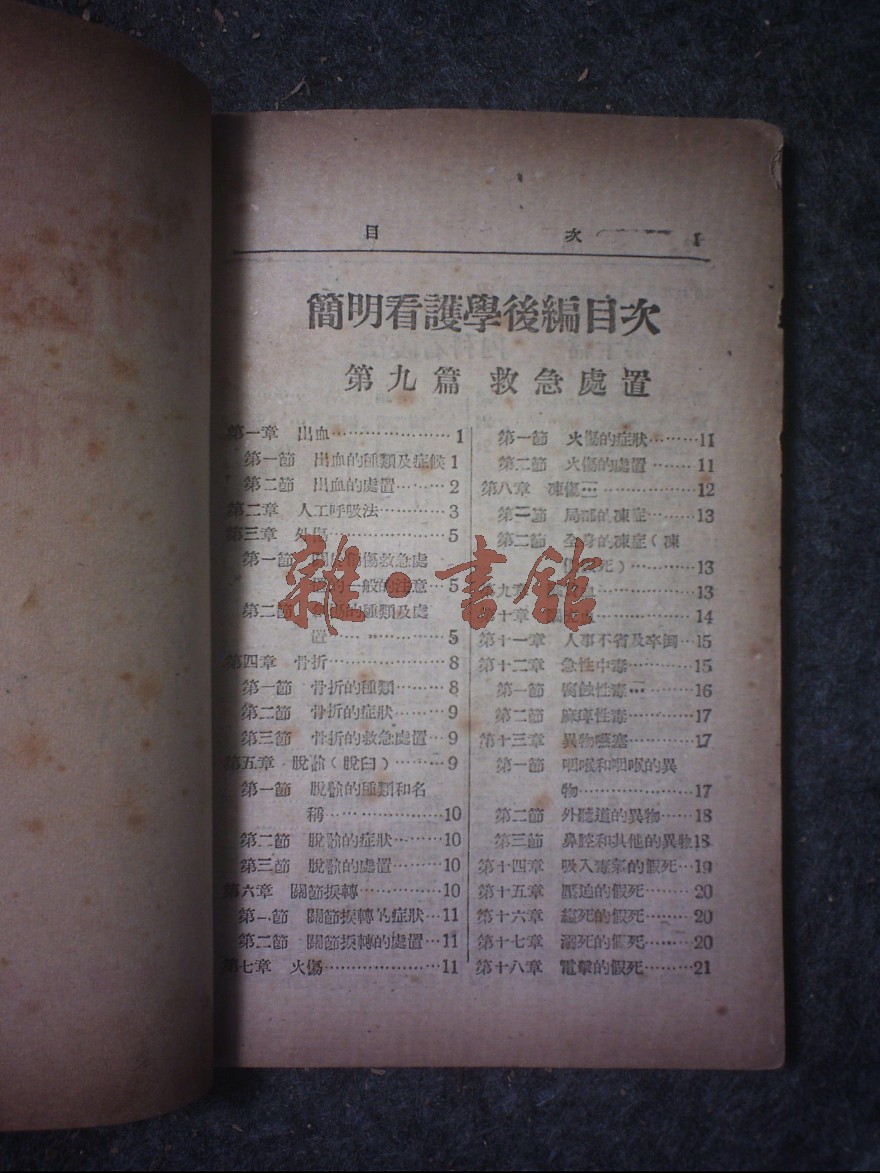 目 次 1
簡明看護學後編目次
第九篇 救急處置
第一章 出血…………………1
第一節 出血的種類及症候1
第二節 出血的處置………2
第二章 人工呼吸法…………3
第三章 外傷…………………5
第一節 傷救急處
的一般的注意…5
第二節 的種類及處
置……………5
第四章 骨折…………………8
第一節 骨折的種類………8
第二節 骨折的症狀………9
第三節 骨折的救急處置…9
第五章 脫骱(脫臼)………9
第一節 脫骱的種類和名
稱…………………10
第二節 脫骱的症狀………10
第三節 脫骱的處置………10
第六章 關節捩轉……………10
第一節 關節捩轉的症狀…11
第二節 關節捩轉的處置…11
第七章 火傷…………………11
第一節 火傷的症狀………11
第二節 火傷的處置………11
第八章 凍傷…………………12
第一節 局部的凍症………13
第二節 全身的凍症(凍
死)…………13
第九章 13
第十章 14
第十一章 人事不省及卒倒…15
第十二章 急性中毒…………15
第一節 腐蝕性毒…………16
第二節 麻痺性毒…………17
第十三章 異物嚥塞…………17
第一節 咽喉和咽喉的異
物…………………17
第二節 外聽道的異物……18
第三節 鼻腔和其他的異物18
第十四章 吸入毒氣的假死…19
第十五章 壓迫的假死………20
第十六章 縊死的假死………20
第十七章 溺死的假死………20
第十八章 電擊的假死………21
雜·書館